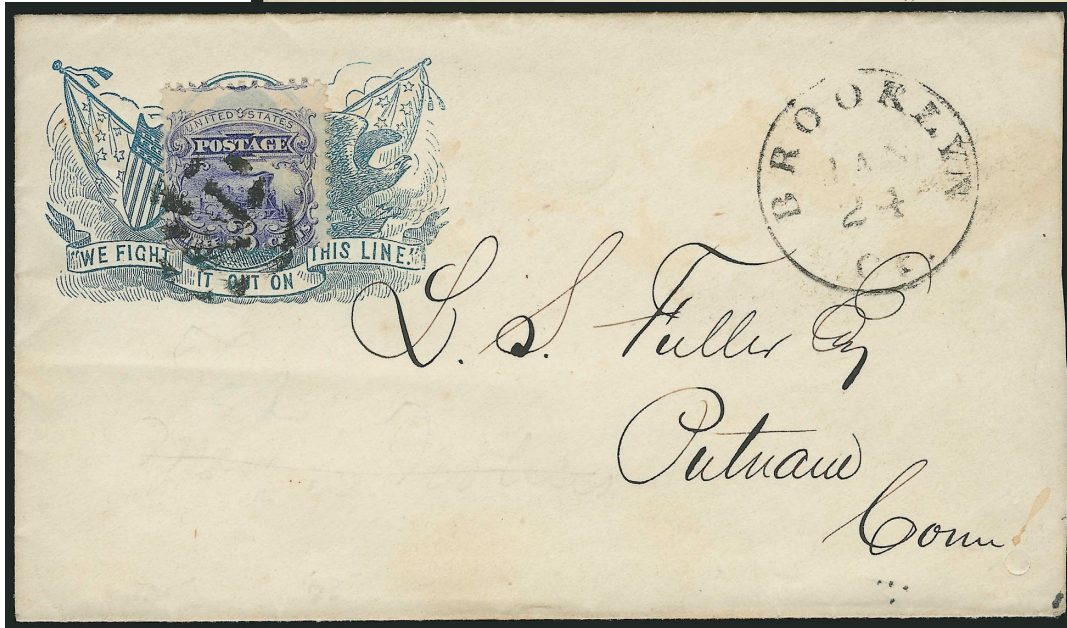 UNITED STATES
POSTAGE
"WE FIGHT IT OUT ON THIS LINE."
BROOKLYN
JAN
24
L. S. Fuller Esq
Putnam
Conn